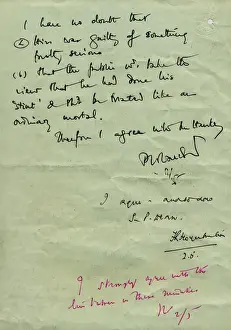 I have no doubt that
(a) Horn was guilty of something
pretty serious
(b) that the public wd. take the
view that he had done his
'stint' & shd be treated like an
ordinary mortal.
Therefore I agree with
2/5
I agree -
Sir P. Dean.
2.5.
I strongly agree with the
line taken in these minutes
2/5